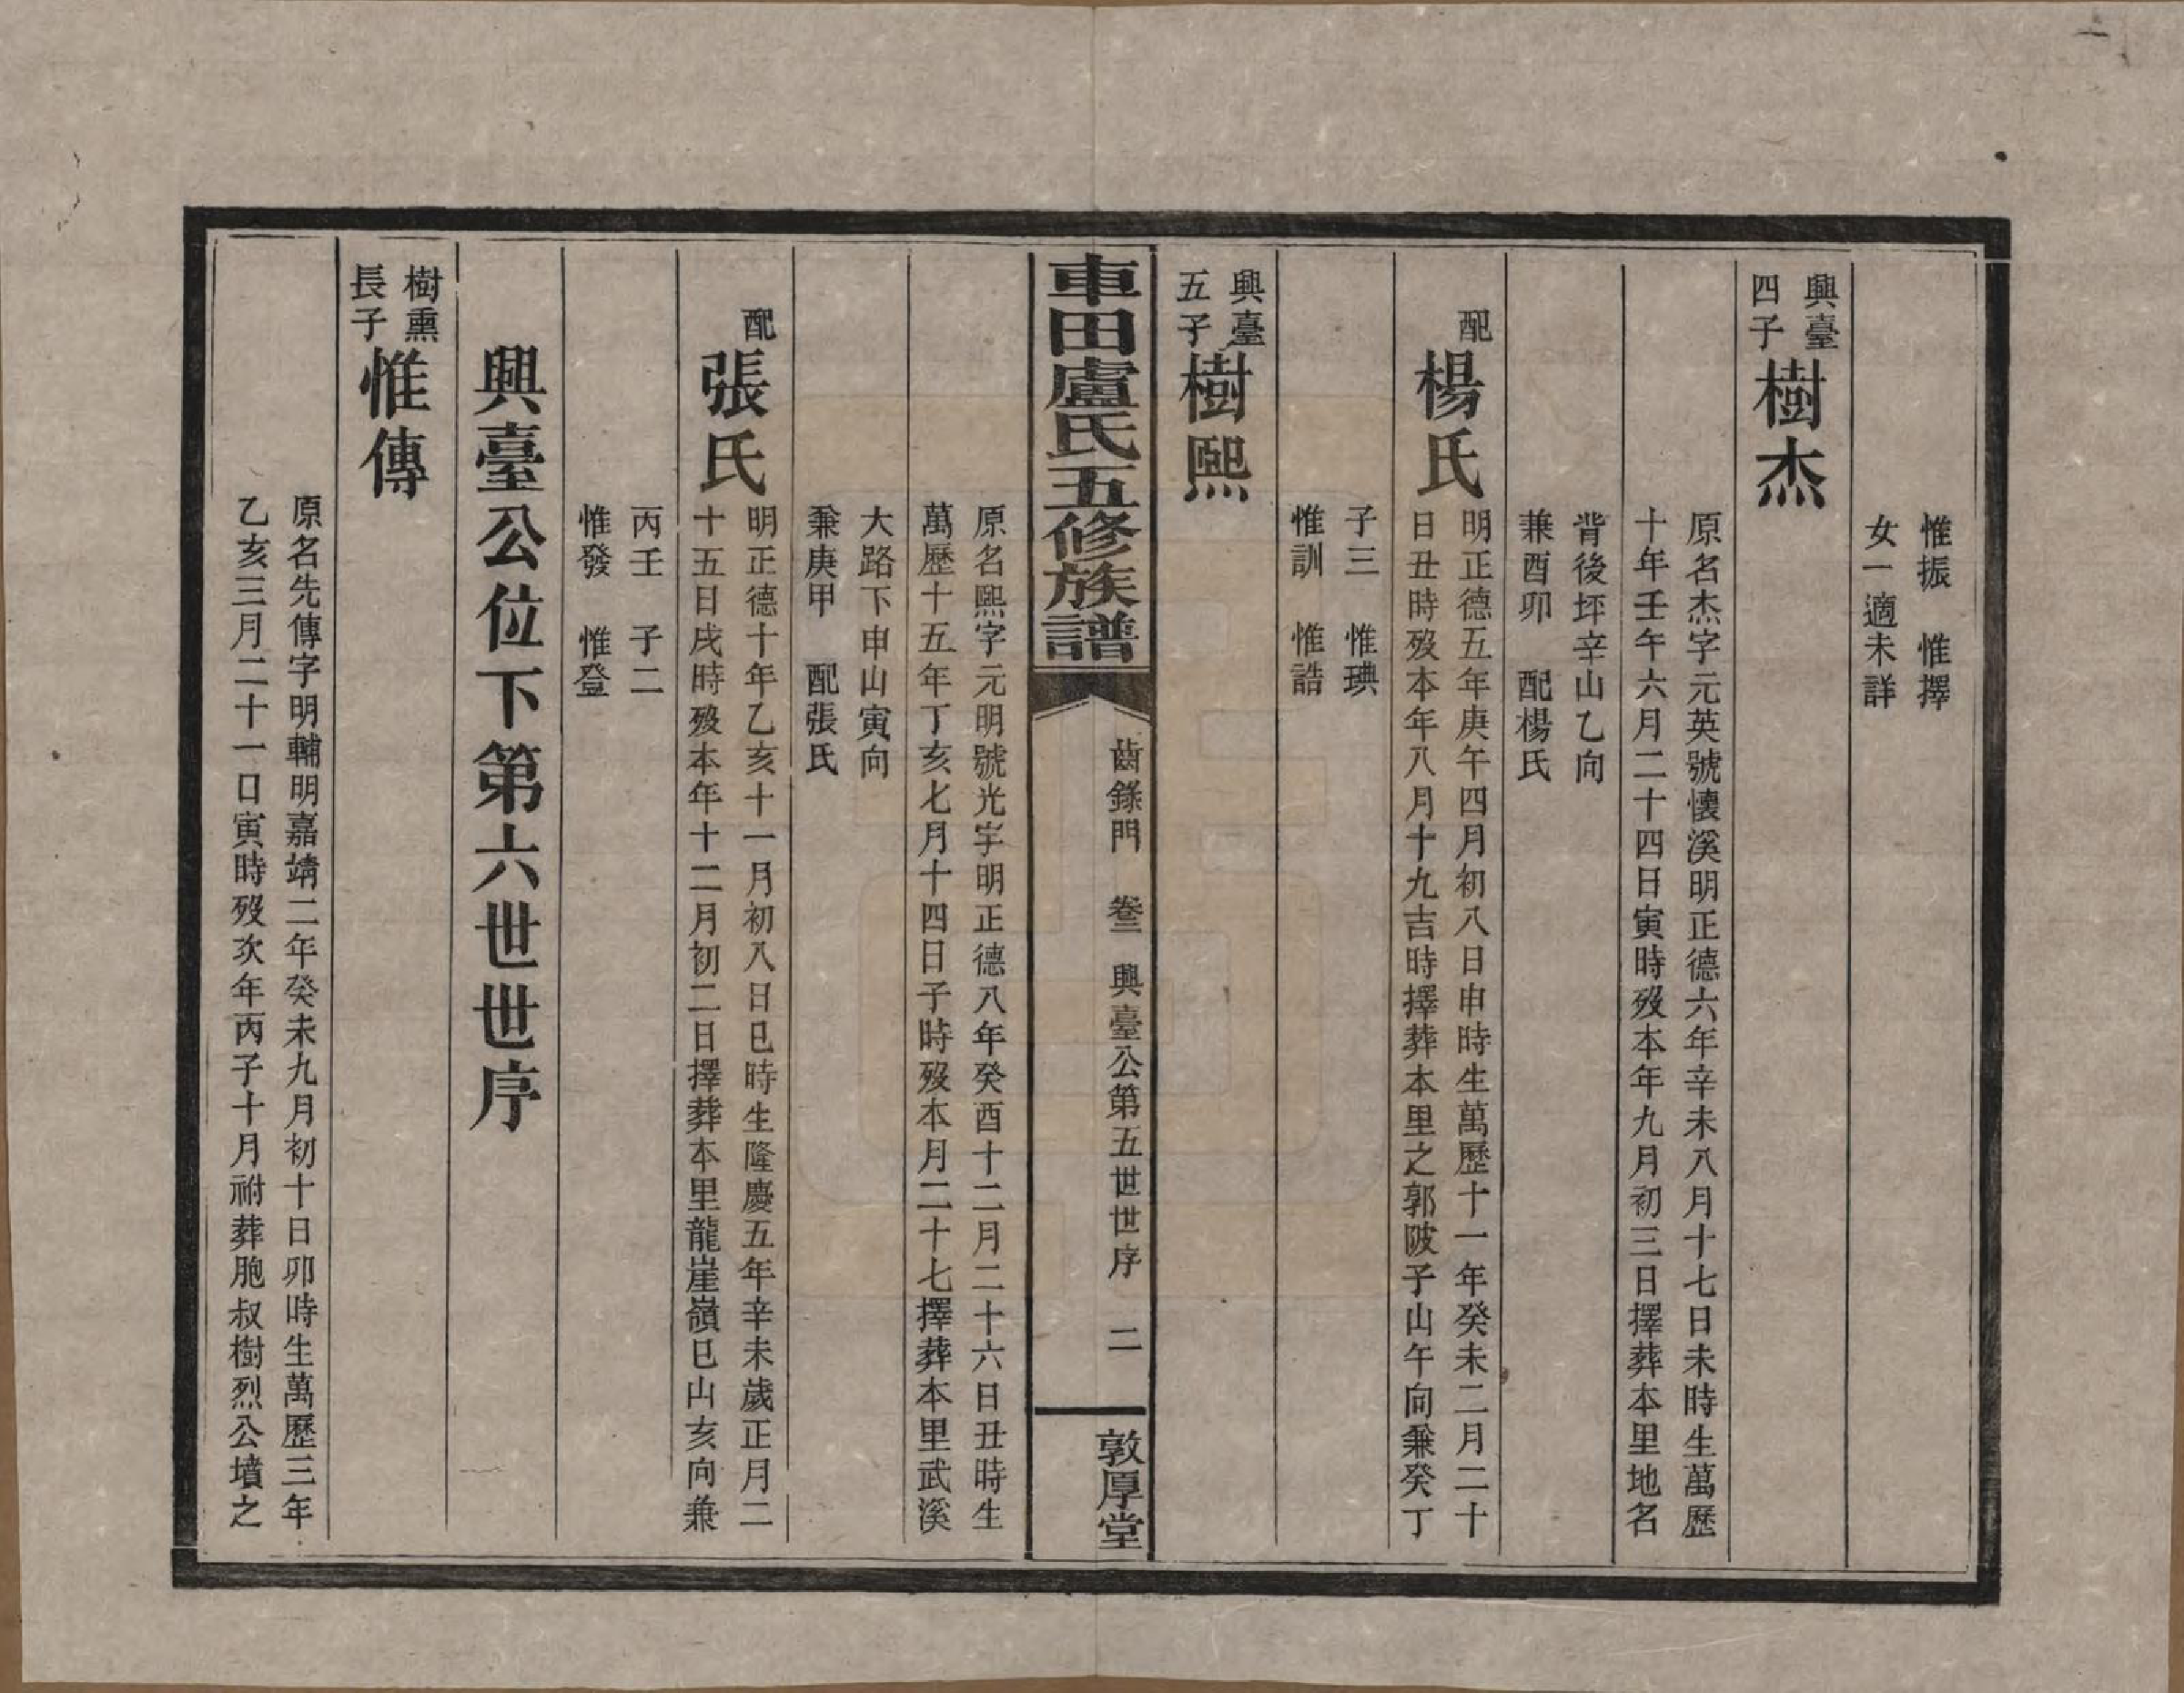 惟振　惟擇
女一適未詳
興臺
四子
樹杰
原名杰字元英號懷溪明正德六年辛未八月十七日未時生萬歷
十年壬午六月二十四日寅時歿本年九月初三日擇葬本里地名
背後坪辛山乙向
兼酉卯　配楊氏
配
楊氏
明正德五年庚午四月初八日申時生萬歷十一年癸未二月二十
日丑時歿本年八月十九吉時擇葬本里之郭陂子山午向兼癸丁
子三　惟琠
惟訓　惟誥
興臺
五子
樹熙
車田盧氏五修族譜
齒錄門　卷三　興臺公第五世世序　二
敦厚堂
原名熙字元明號光宇明正德八年癸酉十二月二十六日丑時生
萬歷十五年丁亥七月十四日子時歿本月二十七擇葬本里武溪
大路下申山寅向
兼庚甲　配張氏
配
張氏
明正德十年乙亥十一月初八日巳時生隆慶五年辛未歲正月二
十五日戌時歿本年十二月初二日擇葬本里龍崖嶺巳山亥向兼
丙壬　子二
惟發　惟登
興臺公位下第六世世序
樹熏
長子
惟傳
原名先傳字明輔明嘉靖二年癸未九月初十日卯時生萬歷三年
乙亥三月二十一口寅時歿次年丙子十月祔葬胞叔樹烈公墳之